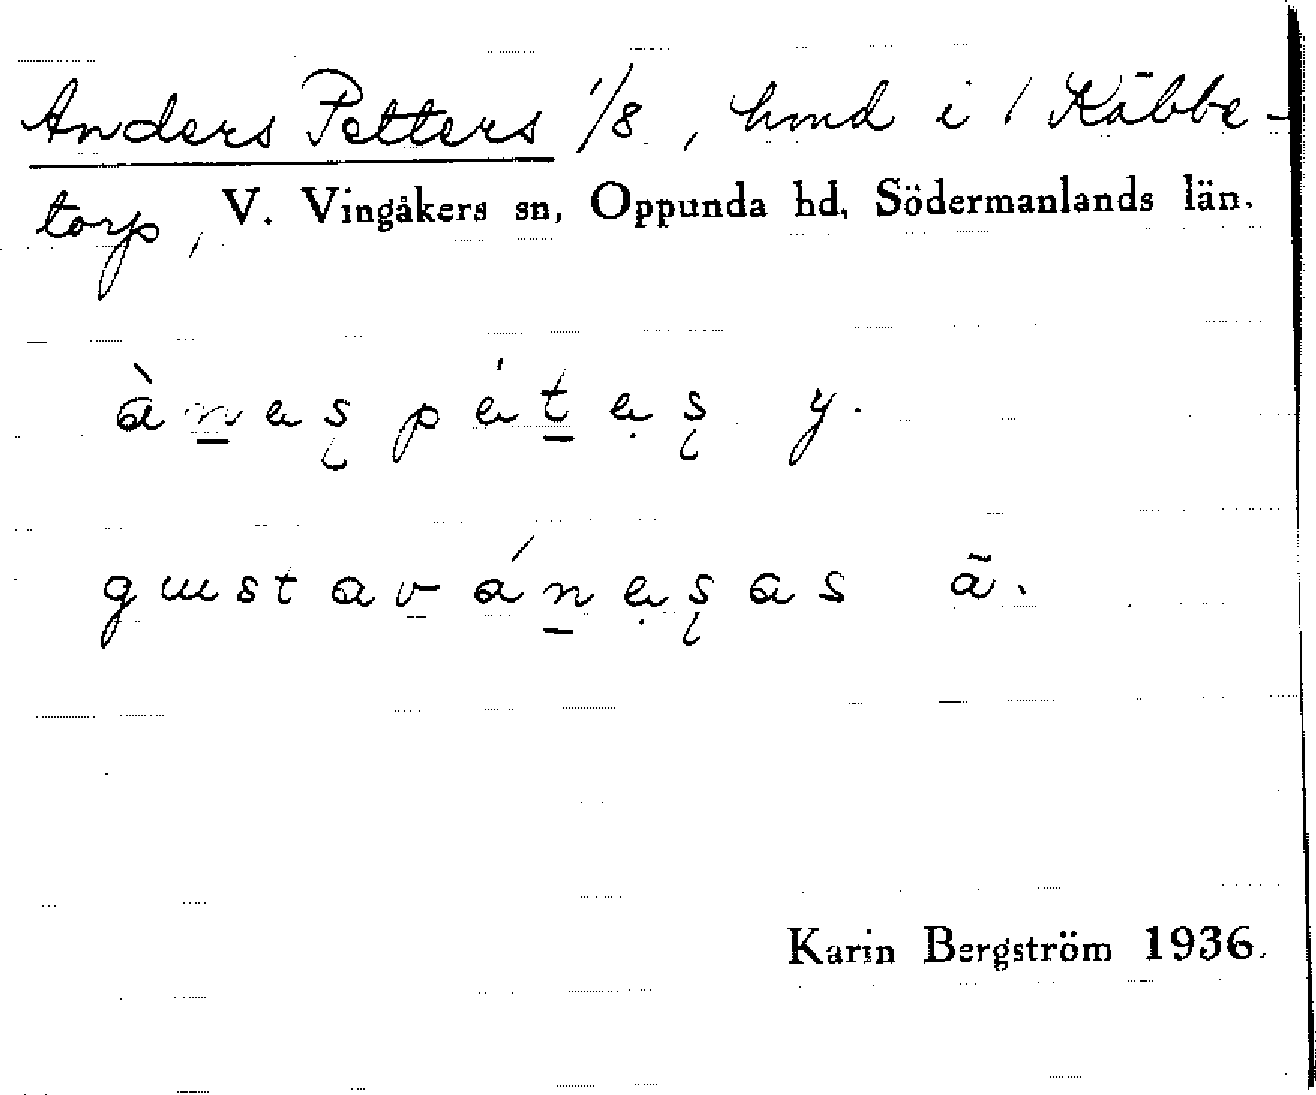 Anders Petters 1/8, hmd i / Käbbe-
torp, V. Vingåkers sn, Oppunda hd, Södermanlands län.
ànaʂ pát̲ạʂ y.
gustav án̲ạʂas ā.
Karin Bergström 1936.